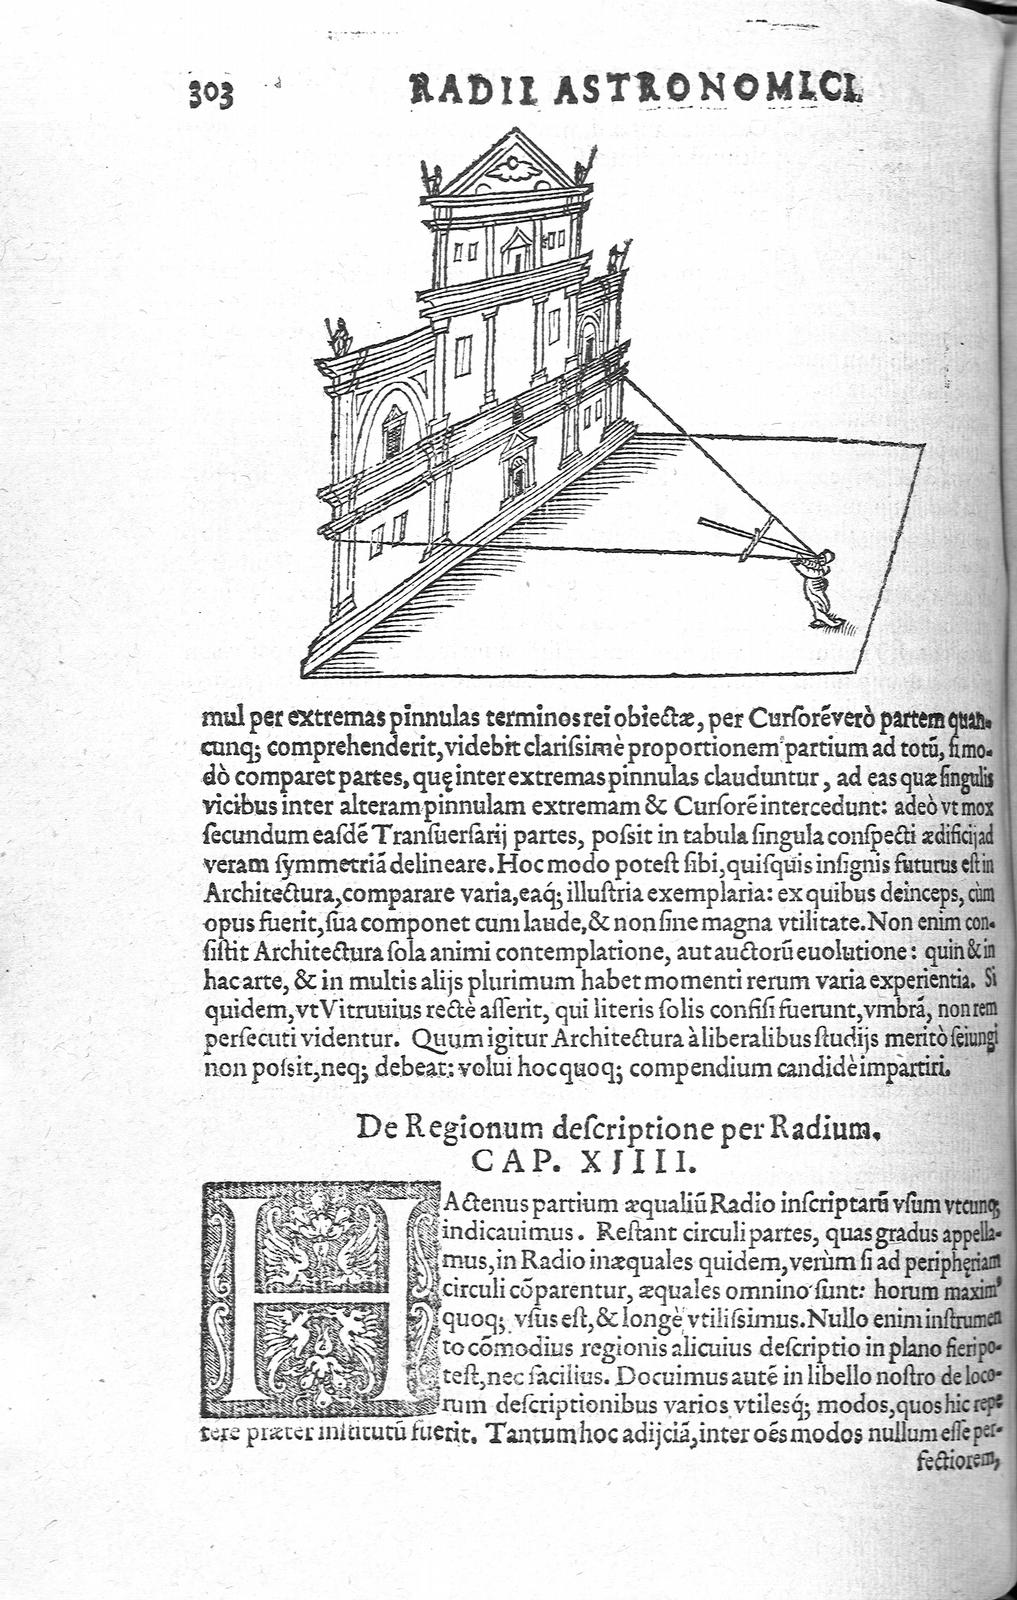 303 RADII ASTRONOMICI.
mul per extremas pinnulas terminos rei obiectæ, per Cursorẽ verò partem quan-
cunq; comprehenderit, videbit clarissimè proportionem partium ad totũ, si mo-
dò comparet partes, quę inter extremas pinnulas clauduntur, ad eas quæ singulis
vicibus inter alteram pinnulam extremam & Cursorẽ intercedunt: adeò vt mox
secundum easdẽ Transuersarij partes, possit in tabula singula conspecti ædificij ad
veram symmetriã delineare. Hoc modo potest sibi, quisquis insignis futurus est in
Architectura, comparare varia, eaq; illustria exemplaria: ex quibus deinceps, cùm
opus fuerit, sua componet cum laude, & non sine magna vtilitate. Non enim con-
sistit Architectura sola animi contemplatione, aut auctorũ euolutione: quin & in
hac arte, & in multis alijs plurimum habet momenti rerum varia experientia. Si
quidem, vt Vitruuius rectè asserit, qui literis solis confisi fuerunt, vmbrã, non rem
persecuti videntur. Quum igitur Architectura à liberalibus studijs meritò seiungi
non possit, neq; debeat: volui hoc quoq; compendium candidè impartiri.
De Regionum descriptione per Radium.
CAP. XIIII.
HActenus partium æqualiũ Radio inscriptarũ vsum vtcunq;
indicauimus. Restant circuli partes, quas gradus appella-
mus, in Radio inæquales quidem, verùm si ad periphęriam
circuli cõparentur, æquales omnino sunt: horum maxim⁹
quoq; vsus est, & longè vtilissimus. Nullo enim instrumen
to cõmodius regionis alicuius descriptio in plano fieri po-
test, nec facilius. Docuimus autẽ in libello nostro de loco-
rum descriptionibus varios vtilesq́; modos, quos hic repe
tere præter institutũ fuerit. Tantum hoc adijciã, inter oẽs modos nullum esse per-
fectiorem,